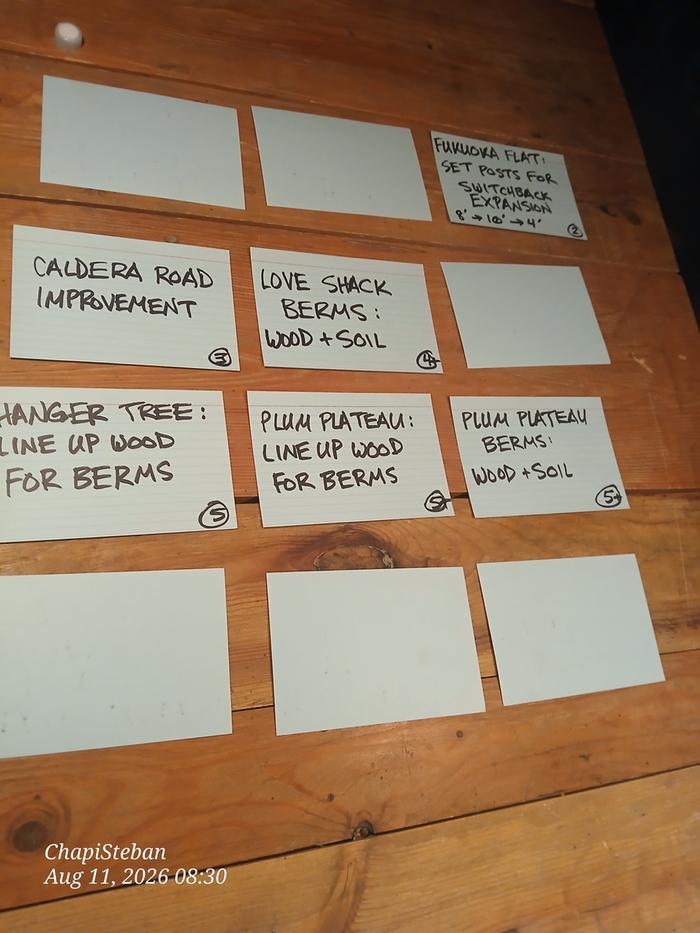 FUKUOKA FLAT:
SET POSTS FOR
SWITCHBACK
EXPANSION
8' → 10' → 4'
2
CALDERA ROAD
IMPROVEMENT
3
LOVE SHACK
BERMS:
WOOD + SOIL
4
HANGER TREE:
LINE UP WOOD
FOR BERMS
5
PLUM PLATEAU:
LINE UP WOOD
FOR BERMS
5
PLUM PLATEAU
BERMS:
WOOD + SOIL
5
ChapiSteban
Aug 11, 2026 08:30